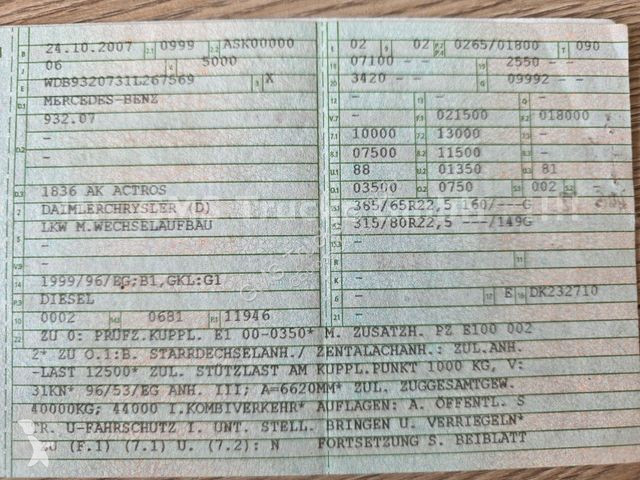 B 24.10.2007 2.1 0999 2.2 ASK00000
J 06 4 5000
E WDB9320731L267569 3 X
D.1 MERCEDES-BENZ
932.07
D.2 -
-
-
D.3 1836 AK ACTROS
2 DAIMLERCHRYSLER (D)
5 LKW M.WECHSELAUFBAU
-
V.9 -
14 1999/96/EG;B1,GKL:G1
P.3 DIESEL
10 0002 14.1 0681 P.1 11946
L 02 9 02 P.2/P.4 0265/01800 T 090
18 07100 - - 19 2550 - -
20 3420 - - G 09992 - -
12 - 13 - Q -
V.7 - F.1 021500 F.2 018000
7.1 10000 7.2 13000 7.3 -
8.1 07500 8.2 11500 8.3 -
U.1 88 U.2 01350 U.3 81
O.1 03500 O.2 0750 S.1 002 S.2 -
15.1 385/65R22,5 160/---G
15.2 315/80R22,5 ---/149G
15.3 -
R - 11 -
K -
6 - 17 E 16 DK232710
21 -
22 ZU 0: PRÜFZ.KUPPL. E1 00-0350* M. ZUSATZH. PZ E100 002
2* ZU O.1:B. STARRDECHSELANH./ ZENTALACHANH.: ZUL.ANH.
-LAST 12500* ZUL. STÜTZLAST AM KUPPL.PUNKT 1000 KG, V:
31KN* 96/53/EG ANH. III; A=6620MM* ZUL. ZUGGESAMTGEW.
40000KG; 44000 I.KOMBIVERKEHR* AUFLAGEN: A. ÖFFENTL. S
TR. U-FAHRSCHUTZ I. UNT. STELL. BRINGEN U. VERRIEGELN*
ZU (F.1) (7.1) U. (7.2): N FORTSETZUNG S. BEIBLATT